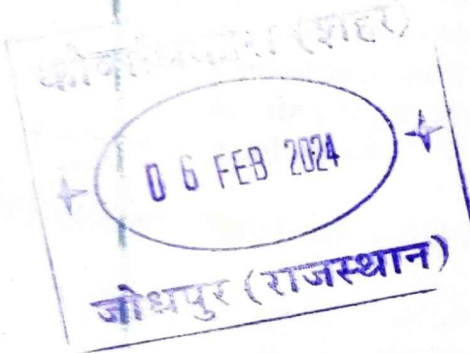 कोषाधिकारी (शहर)
06 FEB 2024
जोधपुर (राजस्थान)